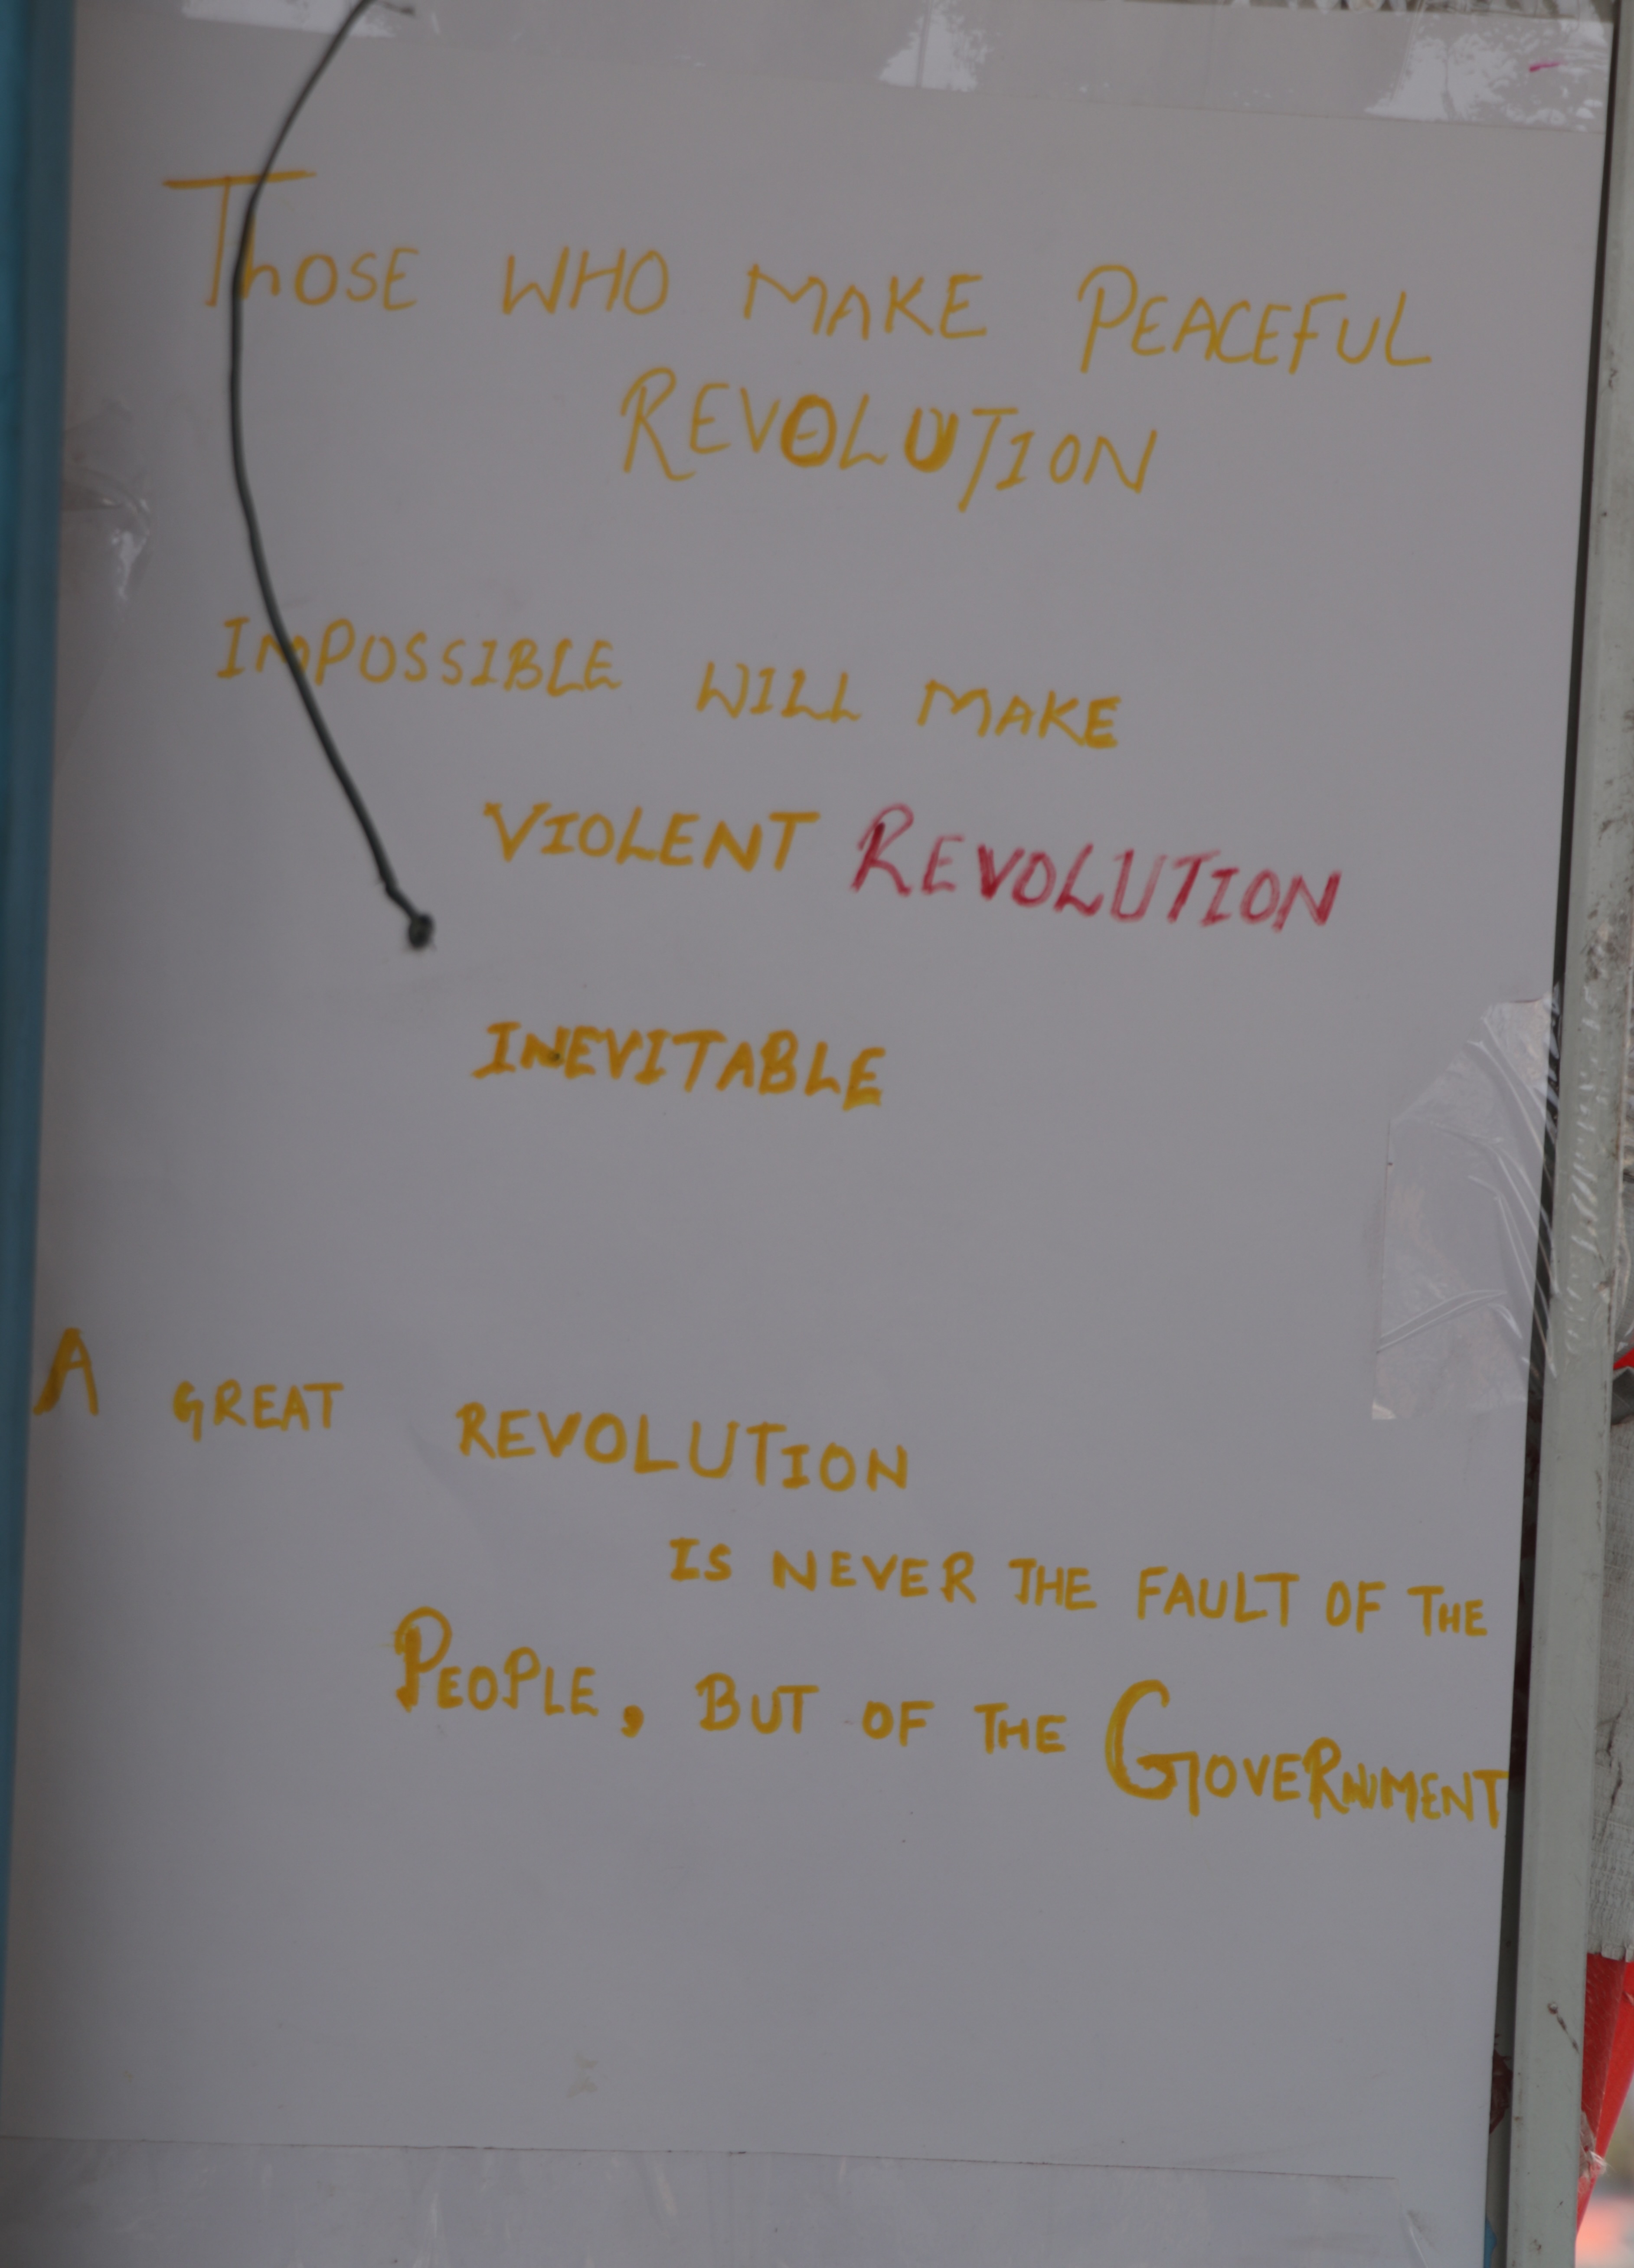 Those WHO MAKE PEACEFUL
REVOLUTION
IMPOSSIBLE WILL MAKE
VIOLENT REVOLUTION
INEVITABLE
A GREAT REVOLUTION
IS NEVER THE FAULT OF THE
PEOPLE, BUT OF THE GOVERNMENT